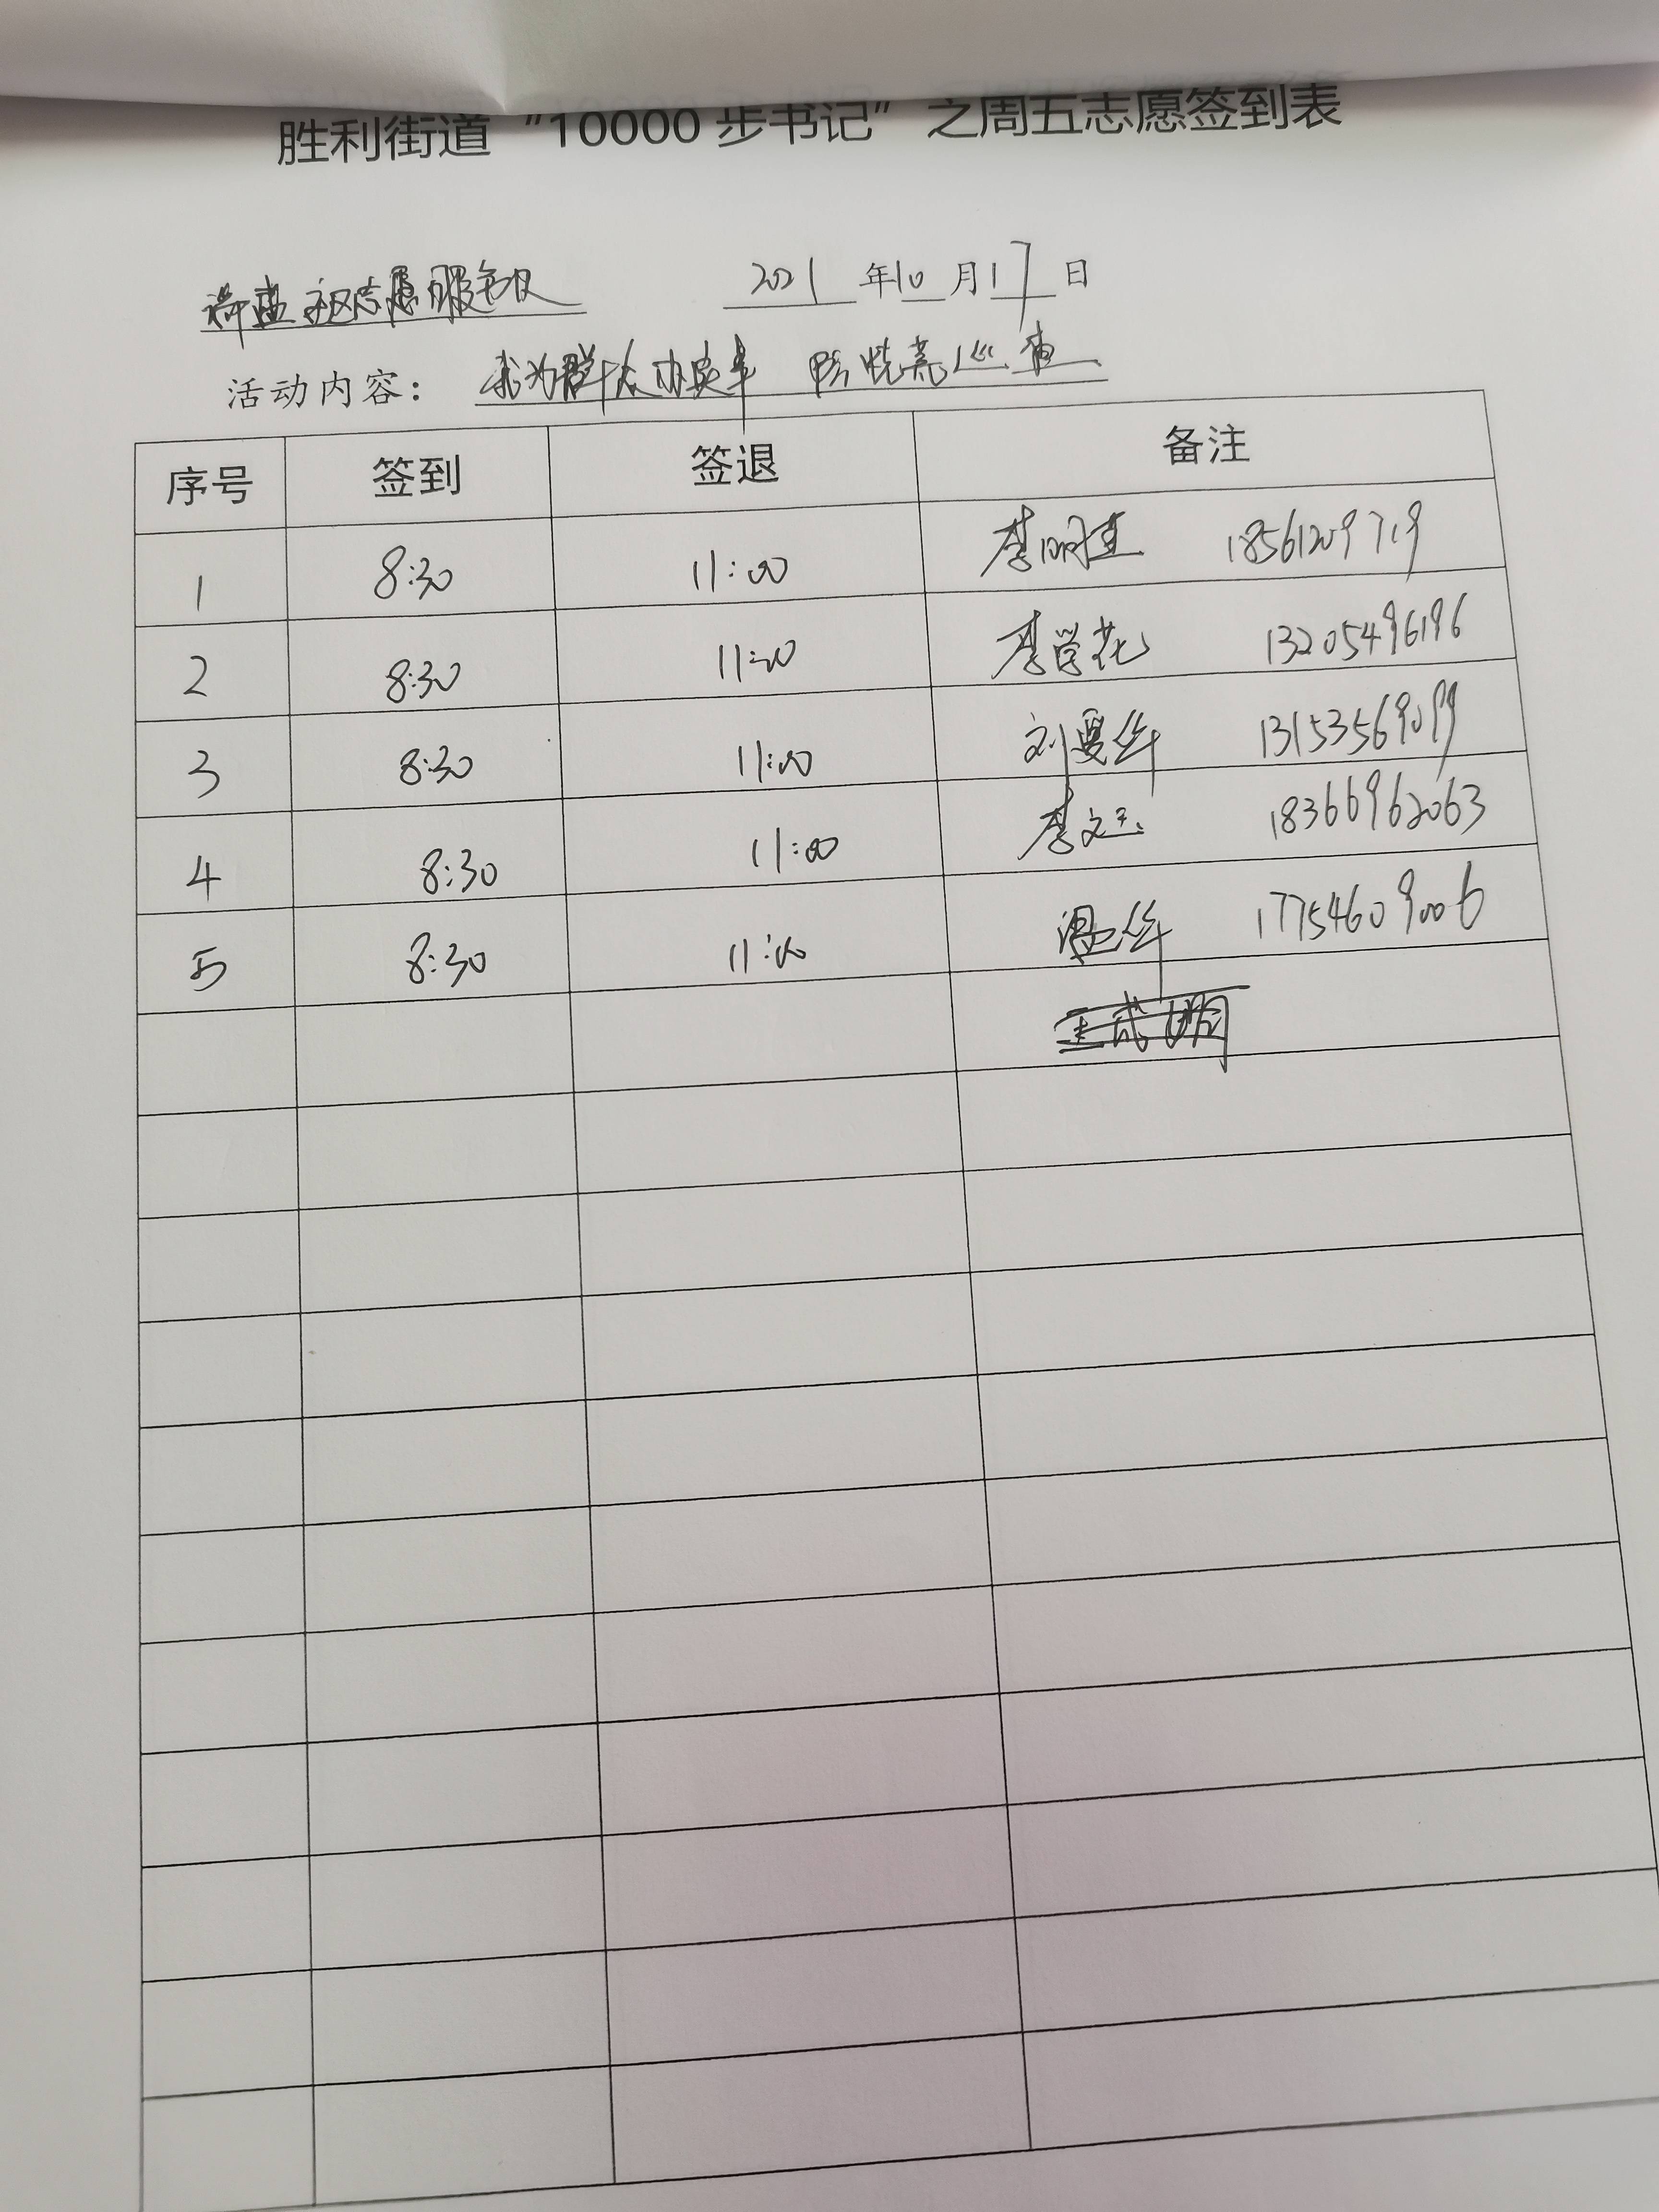 胜利街道“10000步书记”之周五志愿签到表
社区志愿服务队 2021年10月17日
活动内容：我为群众办实事 防 巡查
序号 签到 签退 备注
1 8:30 11:00 李明 18561209719
2 8:30 11:00 李学花 13205496196
3 8:30 11:00 刘曼华 13153569099
4 8:30 11:00 李文玉 18366962063
5 8:30 11:00 温华 17754609006